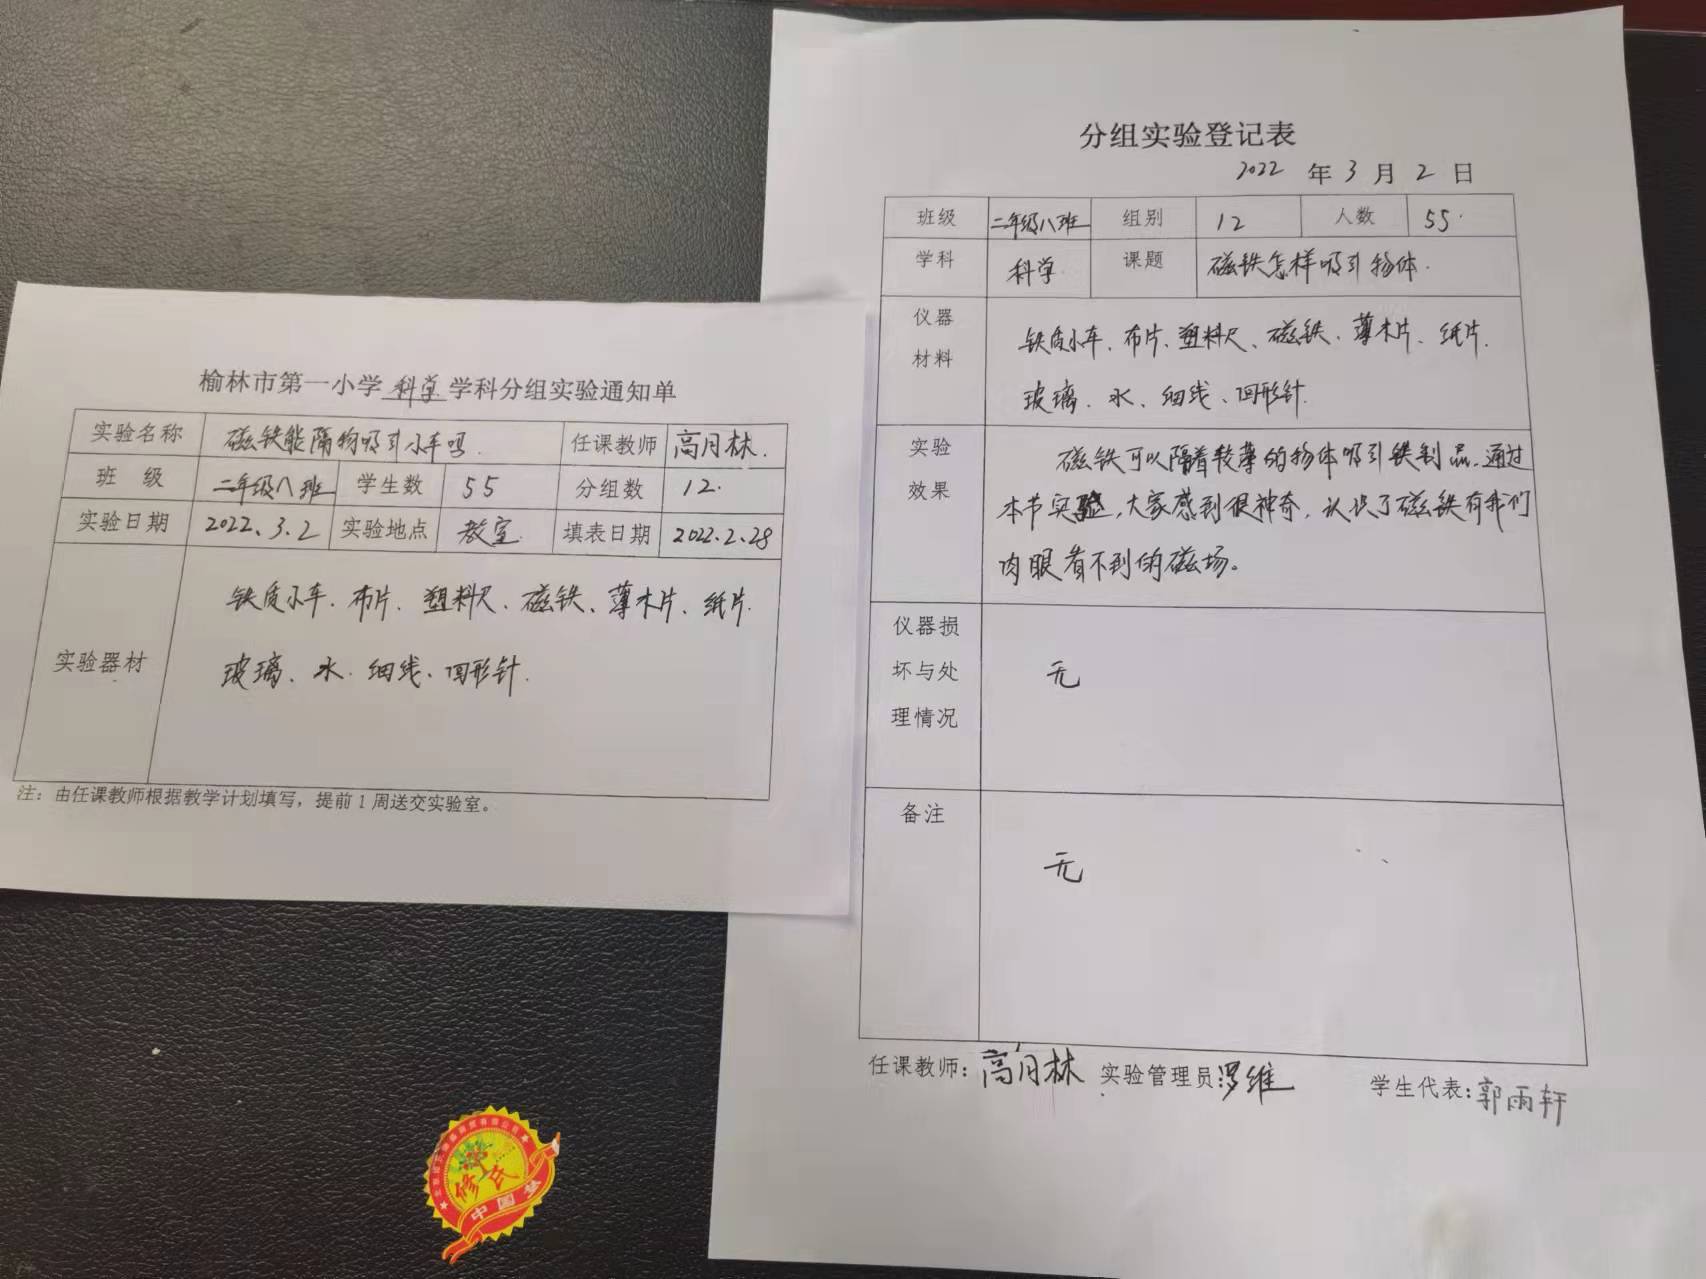 榆林市第一小学科学学科分组实验通知单
实验名称 磁铁能隔物吸引小车吗 任课教师 高月林.
班 级 二年级八班 学生数 55 分组数 12.
实验日期 2022.3.2 实验地点 教室 填表日期 2022.2.28
实验器材
铁质小车、布片、塑料尺、磁铁、薄木片、纸片.
玻璃、水.细线、回形针.
注：由任课教师根据教学计划填写，提前1周送交实验室。
分组实验登记表
2022 年 3 月 2 日
班级 二年级八班 组别 12 人数 55.
学科 科学 课题 磁铁怎样吸引物体.
仪器
材料
铁质小车、布片、塑料尺、磁铁、薄木片、纸片.
玻璃、水、细线、回形针.
实验
效果
磁铁可以隔着较薄的物体吸引铁制品.通过
本节实验,大家感到很神奇,认识了磁铁有我们
肉眼看不到的磁场。
仪器损
坏与处
理情况
无
备注
无
任课教师：高月林 实验管理员:罗维 学生代表:郭雨轩
修氏
中国梦